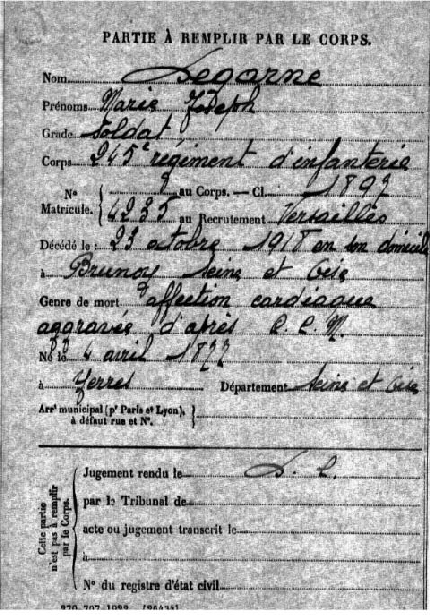 PARTIE À REMPLIR PAR LE CORPS.
Nom Degarne
Prénoms Marie Joseph
Grade Soldat
Corps 245e régiment d'infanterie
No au Corps. — Cl. 1897
Matricule. 4235 au Recrutement Versailles
Décédé le 23 octobre 1918 en son domicile
à Brunoy Seine et Oise
Genre de mort affection cardiaque
aggravée d'après
Né le 4 avril 1877
à Yerres Département Seine et Oise
Arrt municipal (pr Paris et Lyon),
à défaut rue et No.
Cette partie
n'est pas à remplir
par le Corps.
Jugement rendu le
par le Tribunal de
acte ou jugement transcrit le
à
No du registre d'état civil